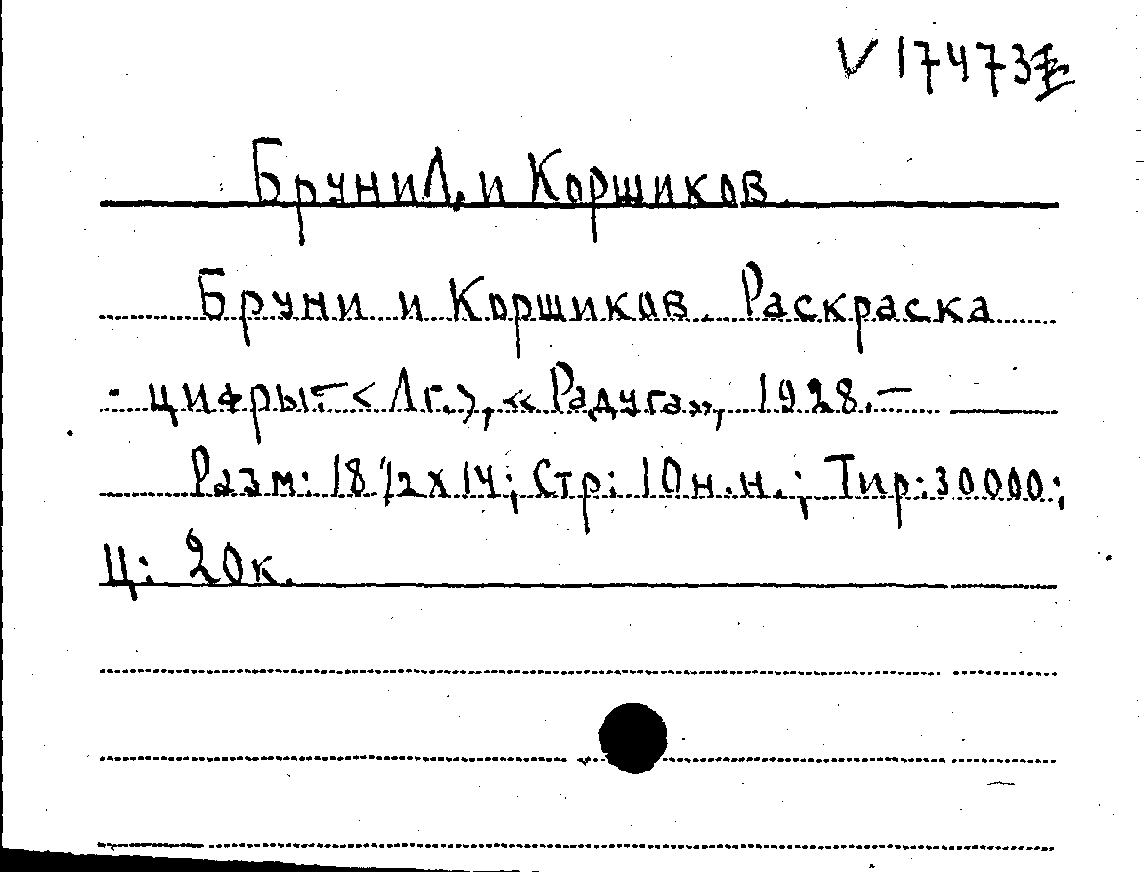 V 17473
Бруни Л. и Корщиков.
Бруни и Корщиков. Раскраска
- цифры. – <Лг.>, «Радуга», 1928. –
Разм: 18 1/2 х 14; Стр: 10 н.н.; Тир: 30000;
Ц: 20 к.